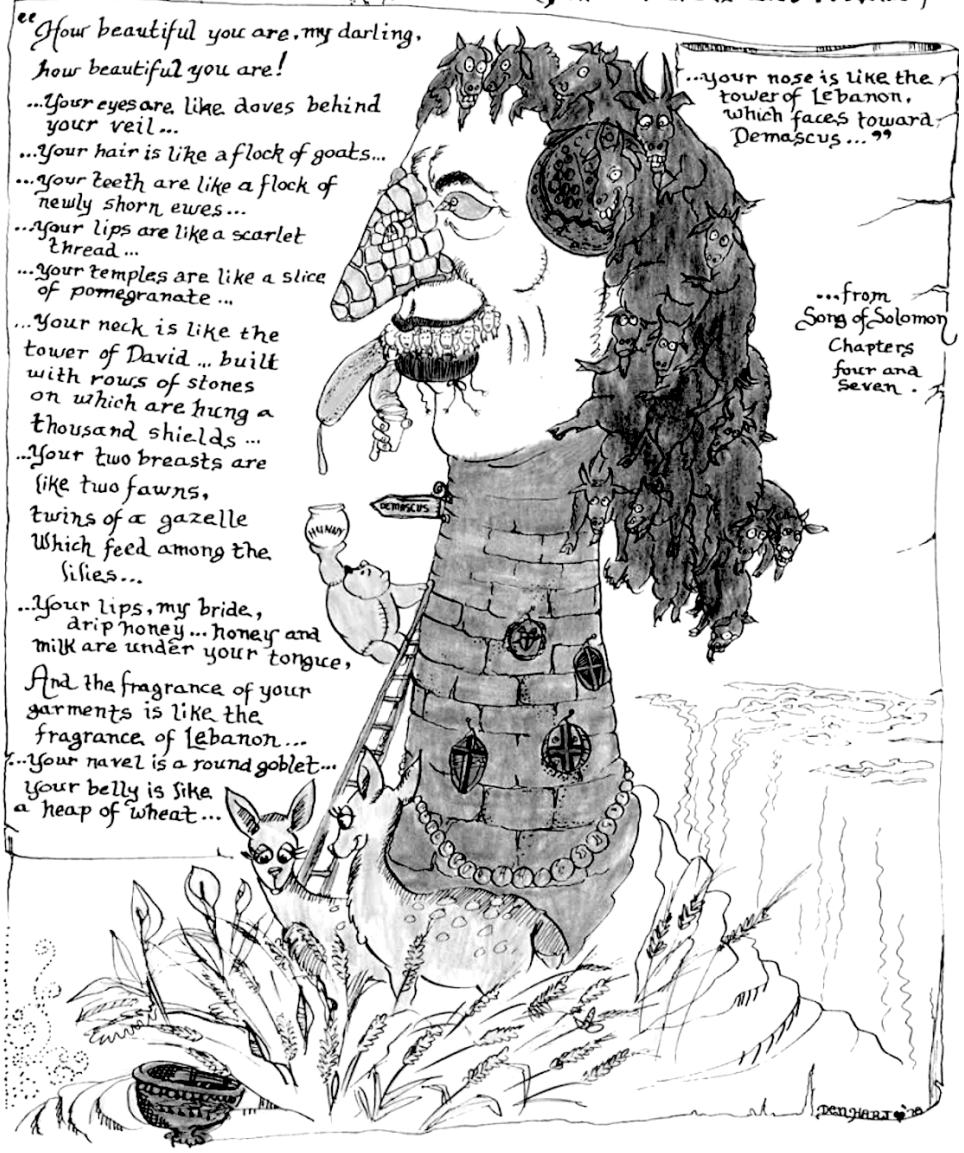 "How beautiful you are, my darling,
how beautiful you are!
...Your eyes are like doves behind
your veil...
...Your hair is like a flock of goats...
...Your teeth are like a flock of
newly shorn ewes...
...Your lips are like a scarlet
thread...
...Your temples are like a slice
of pomegranate...
...Your neck is like the
tower of David... built
with rows of stones
on which are hung a
thousand shields...
...Your two breasts are
like two fawns,
twins of a gazelle
Which feed among the
lilies...
...Your lips, my bride,
drip honey... honey and
milk are under your tongue,
And the fragrance of your
garments is like the
fragrance of Lebanon...
...Your navel is a round goblet...
Your belly is like
a heap of wheat...
...your nose is like the
tower of Lebanon,
which faces toward
Demascus..."
...from
Song of Solomon
Chapters
four and
seven.
DEMASCUS
HUNNY
DEN HART '78